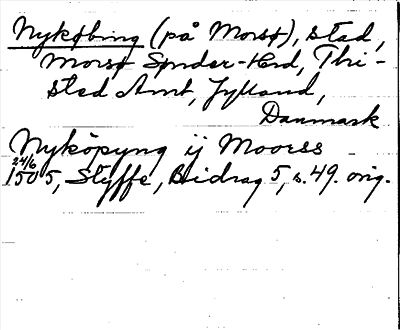 Nykøbing (på Morsø), stad,
Morsø Sønder-Hrd, Thi-
sted Amt, Jylland,
Danmark
Nyköpyng ij Moorss
24/6
1505, Styffe, Bidrag 5, s. 49. orig.